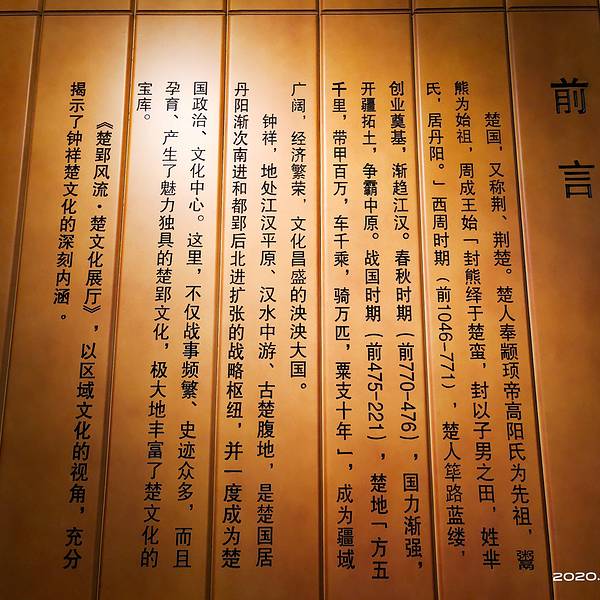 前言
楚国，又称荆、荆楚。楚人奉颛顼帝高阳氏为先祖，鬻
熊为始祖，周成王始「封熊绎于楚蛮，封以子男之田，姓芈
氏，居丹阳。」西周时期（前1046-771），楚人筚路蓝缕，
创业奠基，渐趋江汉。春秋时期（前770-476），国力渐强，
开疆拓土，争霸中原。战国时期（前475-221），楚地「方五
千里，带甲百万，车千乘，骑万匹，粟支十年」，成为疆域
广阔，经济繁荣，文化昌盛的泱泱大国。
钟祥，地处江汉平原、汉水中游、古楚腹地，是楚国居
丹阳渐次南进和都郢后北进扩张的战略枢纽，并一度成为楚
国政治、文化中心。这里，不仅战事频繁、史迹众多，而且
孕育、产生了魅力独具的楚郢文化，极大地丰富了楚文化的
宝库。
《楚郢风流·楚文化展厅》，以区域文化的视角，充分
揭示了钟祥楚文化的深刻内涵。
2020.